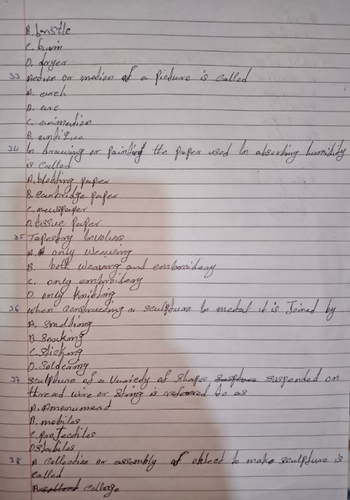 B. bristle
C. burin
D. dryer
33 Action or motion of a Picture is called
A. arch
B. arc
C. animation
D. antique
34 In drawing or painting the paper used for absorbing humidity
is called
A. blotting paper
B. cambridge paper
C. newspaper
D. tissue paper
35 Tapestry involves
A. only weaving
B. both weaving and embroidery
C. only embroidery
D. only knitting
36 when constructing a sculpture in metal it is Joined by
A. smelting
B. soaking
C. sticking
D. Soldering
37 sculpture of a variety of shapes suspended on
thread wire or string is referred to as
A. monument
B. mobiles
C. projectiles
D. stabiles
38 A collection or assembly of object to make sculpture is
called
A. collage